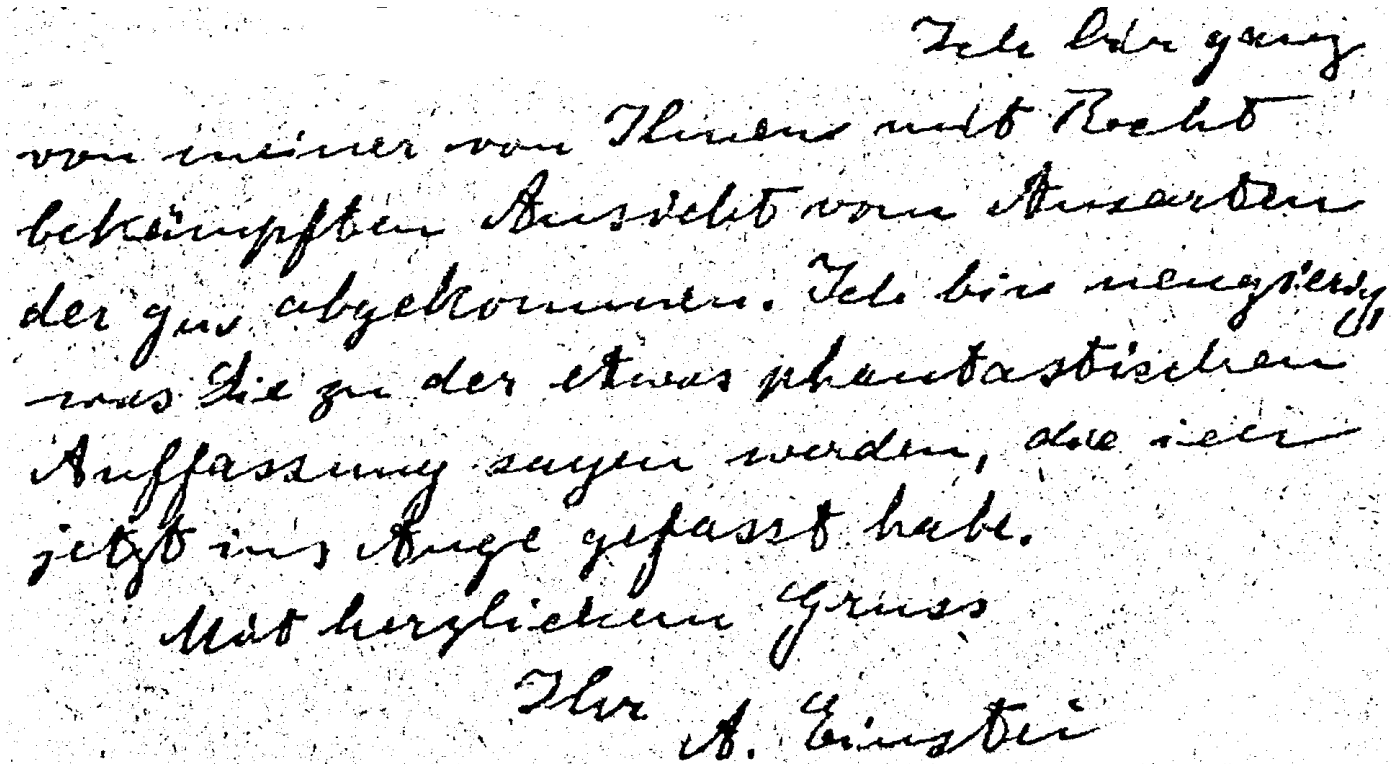 Ich bin ganz
von meiner von Ihnen mit Recht
bekämpften Ansicht vom Ausarten
der gμν abgekommen. Ich bin neugierig,
was Sie zu der etwas phantastischen
Auffassung sagen werden, die ich
jetzt ins Auge gefasst habe.
Mit herzlichem Gruss
Ihr
A. Einstein